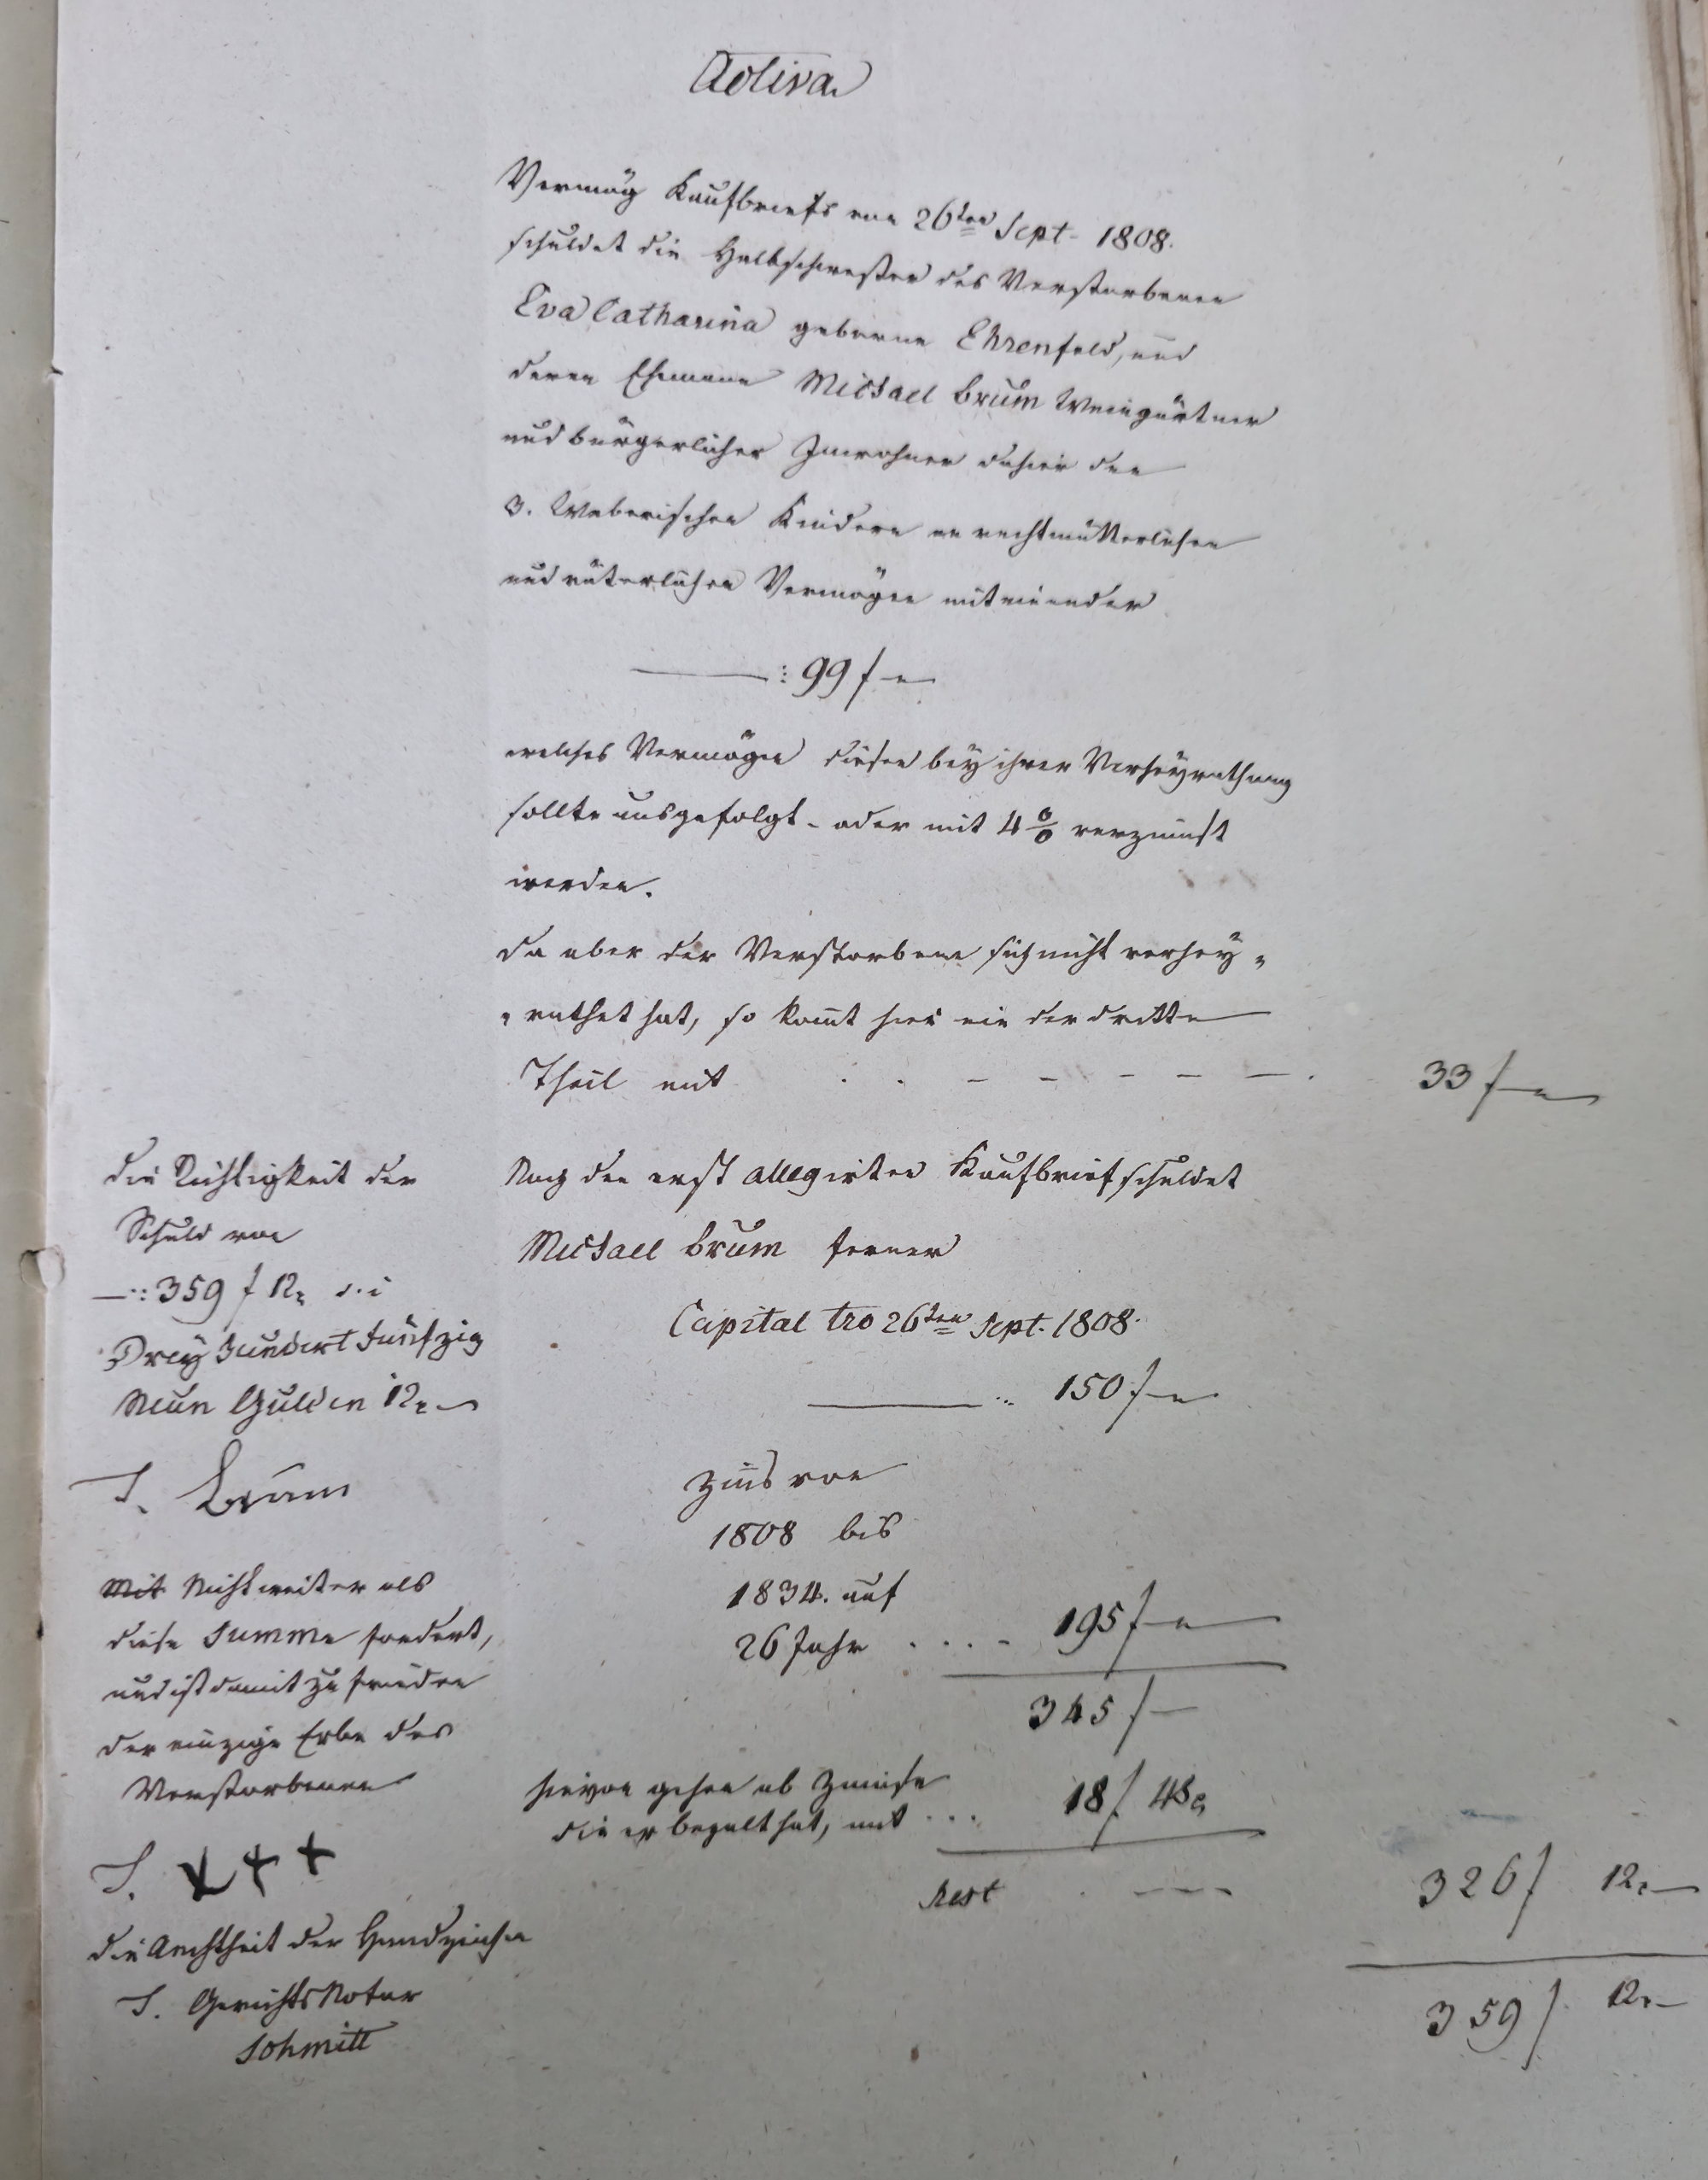 Activa
Vermög Kaufbriefs vom 26ten Sept. 1808.
schuldet die Halbschwester des Verstorbenen
Eva Catharina geborne Ehrenfeld, und
deren Ehemann Michael Brüm Weingärtner
und bürgerlicher Inwohner dahier den
3. Weberischen Kindern an rechtmütterlichen
und väterlichen Vermögen miteinander
99 f —
welches Vermögen diesen bey ihrer Verheyrathung
sollte ausgefolgt - oder mit 4 % verzinnst
werden.
Da aber der Verstorbene sich nicht verhey„
„rathet hat, so komt hier ein der dritte
Theil mit . . – – – – – . 33 f —
Nach den erst allegirten Kaufbrief schuldet
Michael Brüm ferner
Capital tro 26ten Sept. 1808.
150 f —
Zinß von
1808 bis
1834. auf
26 Jahr . . . . 195 f —
345 f —
hievon gehen ab Zinnse
die er bezalt hat, mit . . . 18 f. 48 x
Rest . – – – 326 f 12 x —
359 f. 12 x —
Die Richtigkeit der
Schuld von
359 f 12 x d. i
Drey Hundert Fünfzig
Neün Gulden 12 x —
T. Brüm
Mit Nicht weiter als
diese Summe fordert,
und ist damit zufrieden
der einzige Erbe des
Verstorbenen
T. + + +
Die Aechtheit der Handzeichen
T. Gerichts Notar
Schmitt